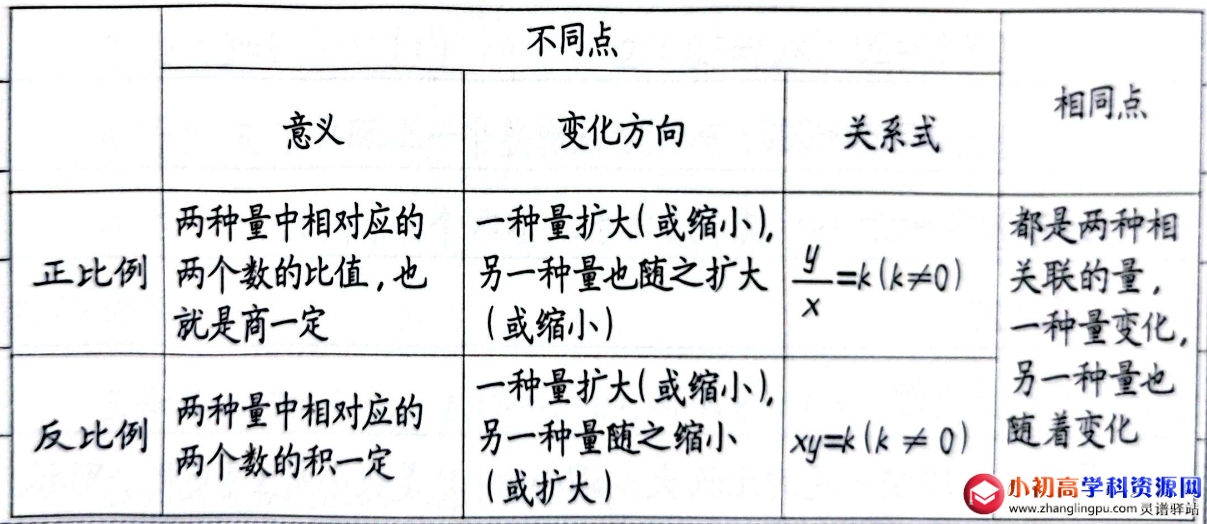 不同点
意义
变化方向
关系式
相同点
正比例
两种量中相对应的
两个数的比值,也
就是商一定
一种量扩大(或缩小),
另一种量也随之扩大
(或缩小)
y/x=k(k≠0)
都是两种相
关联的量,
一种量变化,
另一种量也
随着变化
反比例
两种量中相对应的
两个数的积一定
一种量扩大(或缩小),
另一种量随之缩小
(或扩大)
xy=k(k≠0)
小初高学科资源网
www.zhanglingpu.com 灵谱驿站